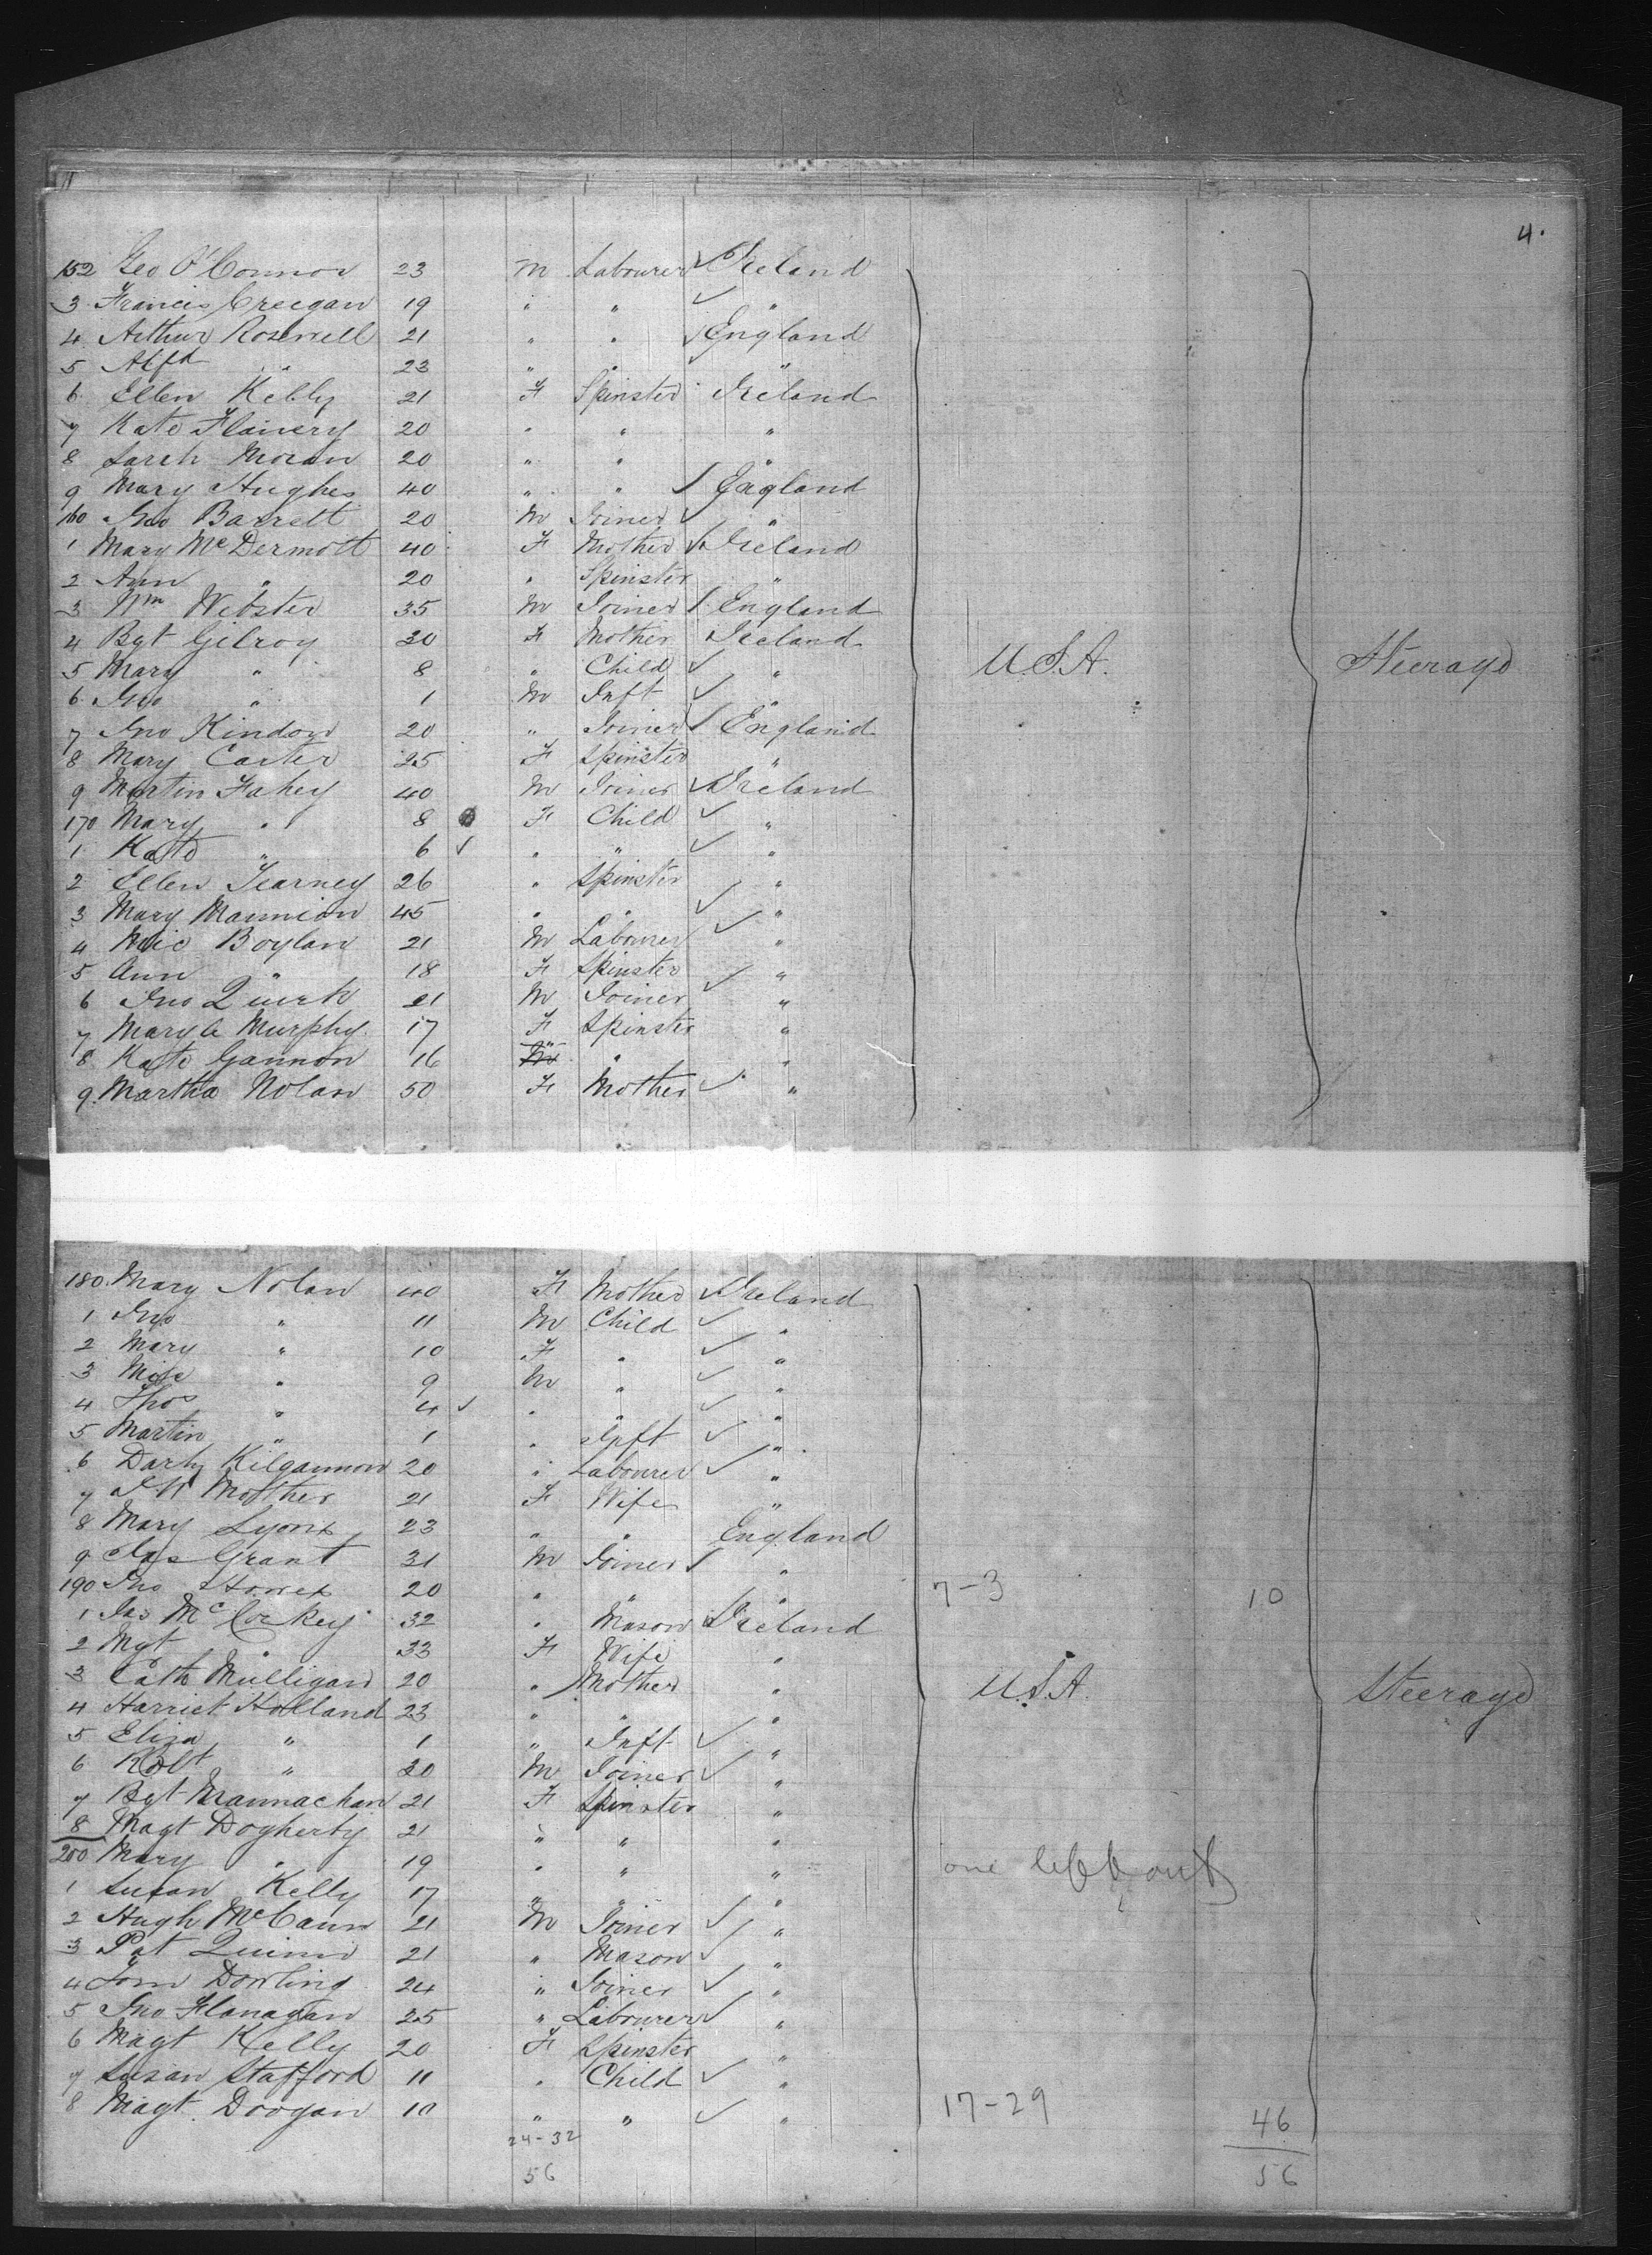 4.
152 Geo O'Connor 23 M Labourer ✓ Ireland
3 Francis Creegan 19 " " ✓ "
4 Arthur Rosewell 21 " " ✓ England
5 Alfd " 23 " " "
6 Ellen Kelly 21 F Spinster Ireland
7 Kate Flanery 20 " " "
8 Sarah Moran 20 " " "
9 Mary Hughes 40 " " / England
160 Jno Barrett 20 M Joiner ✓ "
1 Mary McDermott 40 F Mother ✓ Ireland
2 Ann " 20 " Spinster "
3 Wm Webster 35 M Joiner / England
4 Bgt Gilroy 30 F Mother Ireland
5 Mary " 8 " Child ✓ " U.S.A. Steerage
6 Jno " 1 M Inft ✓ "
7 Jno Kindon 20 " Joiner / England
8 Mary Carter 25 F Spinster "
9 Martin Fahey 40 M Joiner ✓ Ireland
170 Mary " 8 F Child ✓ "
1 Kate " 6 ✓ " " ✓ "
2 Ellen Tearney 26 " Spinster "
3 Mary Mannion 45 " " ✓ "
4 Mic Boylan 21 M Labourer ✓ "
5 Ann " 18 F Spinster "
6 Jno Quirk 21 M Joiner ✓ "
7 Mary A Murphy 17 F Spinster "
8 Kate Gannon 16 " " "
9 Martha Nolan 50 F Mother ✓ "
180 Mary Nolan 40 F Mother ✓ Ireland
1 Jno " 11 M Child ✓ "
2 Mary " 10 F " ✓ "
3 " 9 M " ✓ "
4 Thos " 4 ✓ " " ✓ "
5 Martin " 1 " Inft ✓ "
6 Darby Kilgannon 20 " Labourer ✓ "
7 Mother 21 F Wife "
8 Mary Lyons 23 " " England
9 Jas Grant 31 M Joiner / "
190 Jno 20 " " " 7-3 10
1 Jas McCorkey 32 " Mason ✓ Ireland
2 Mgt " 33 F Wife "
3 Cath Mulligan 20 " Mother " U.S.A. Steerage
4 Harriet Holland 23 " " "
5 Eliza " 1 " Inft ✓ "
6 Robt " 20 M Joiner ✓ "
7 Bgt Mannachan 21 F Spinster "
8 Magt Dogherty 21 " " "
200 Mary " 19 " " " one left out
1 Susan Kelly 17 " " "
2 Hugh McCann 21 M Joiner ✓ "
3 Pat Quinn 21 " Mason ✓ "
4 Tom Dowling 24 " Joiner ✓ "
5 Jno Flanagan 25 " Labourer ✓ "
6 Magt Kelly 20 F Spinster "
7 Susan Stafford 11 " Child ✓ "
8 Magt Doogan 10 " " ✓ " 17-29 46
24-32
56 56